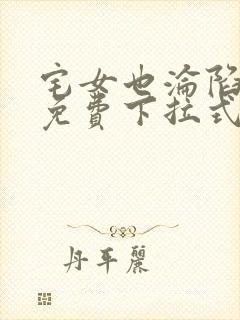 宅女也淪陷
免費下拉式
丹平麗